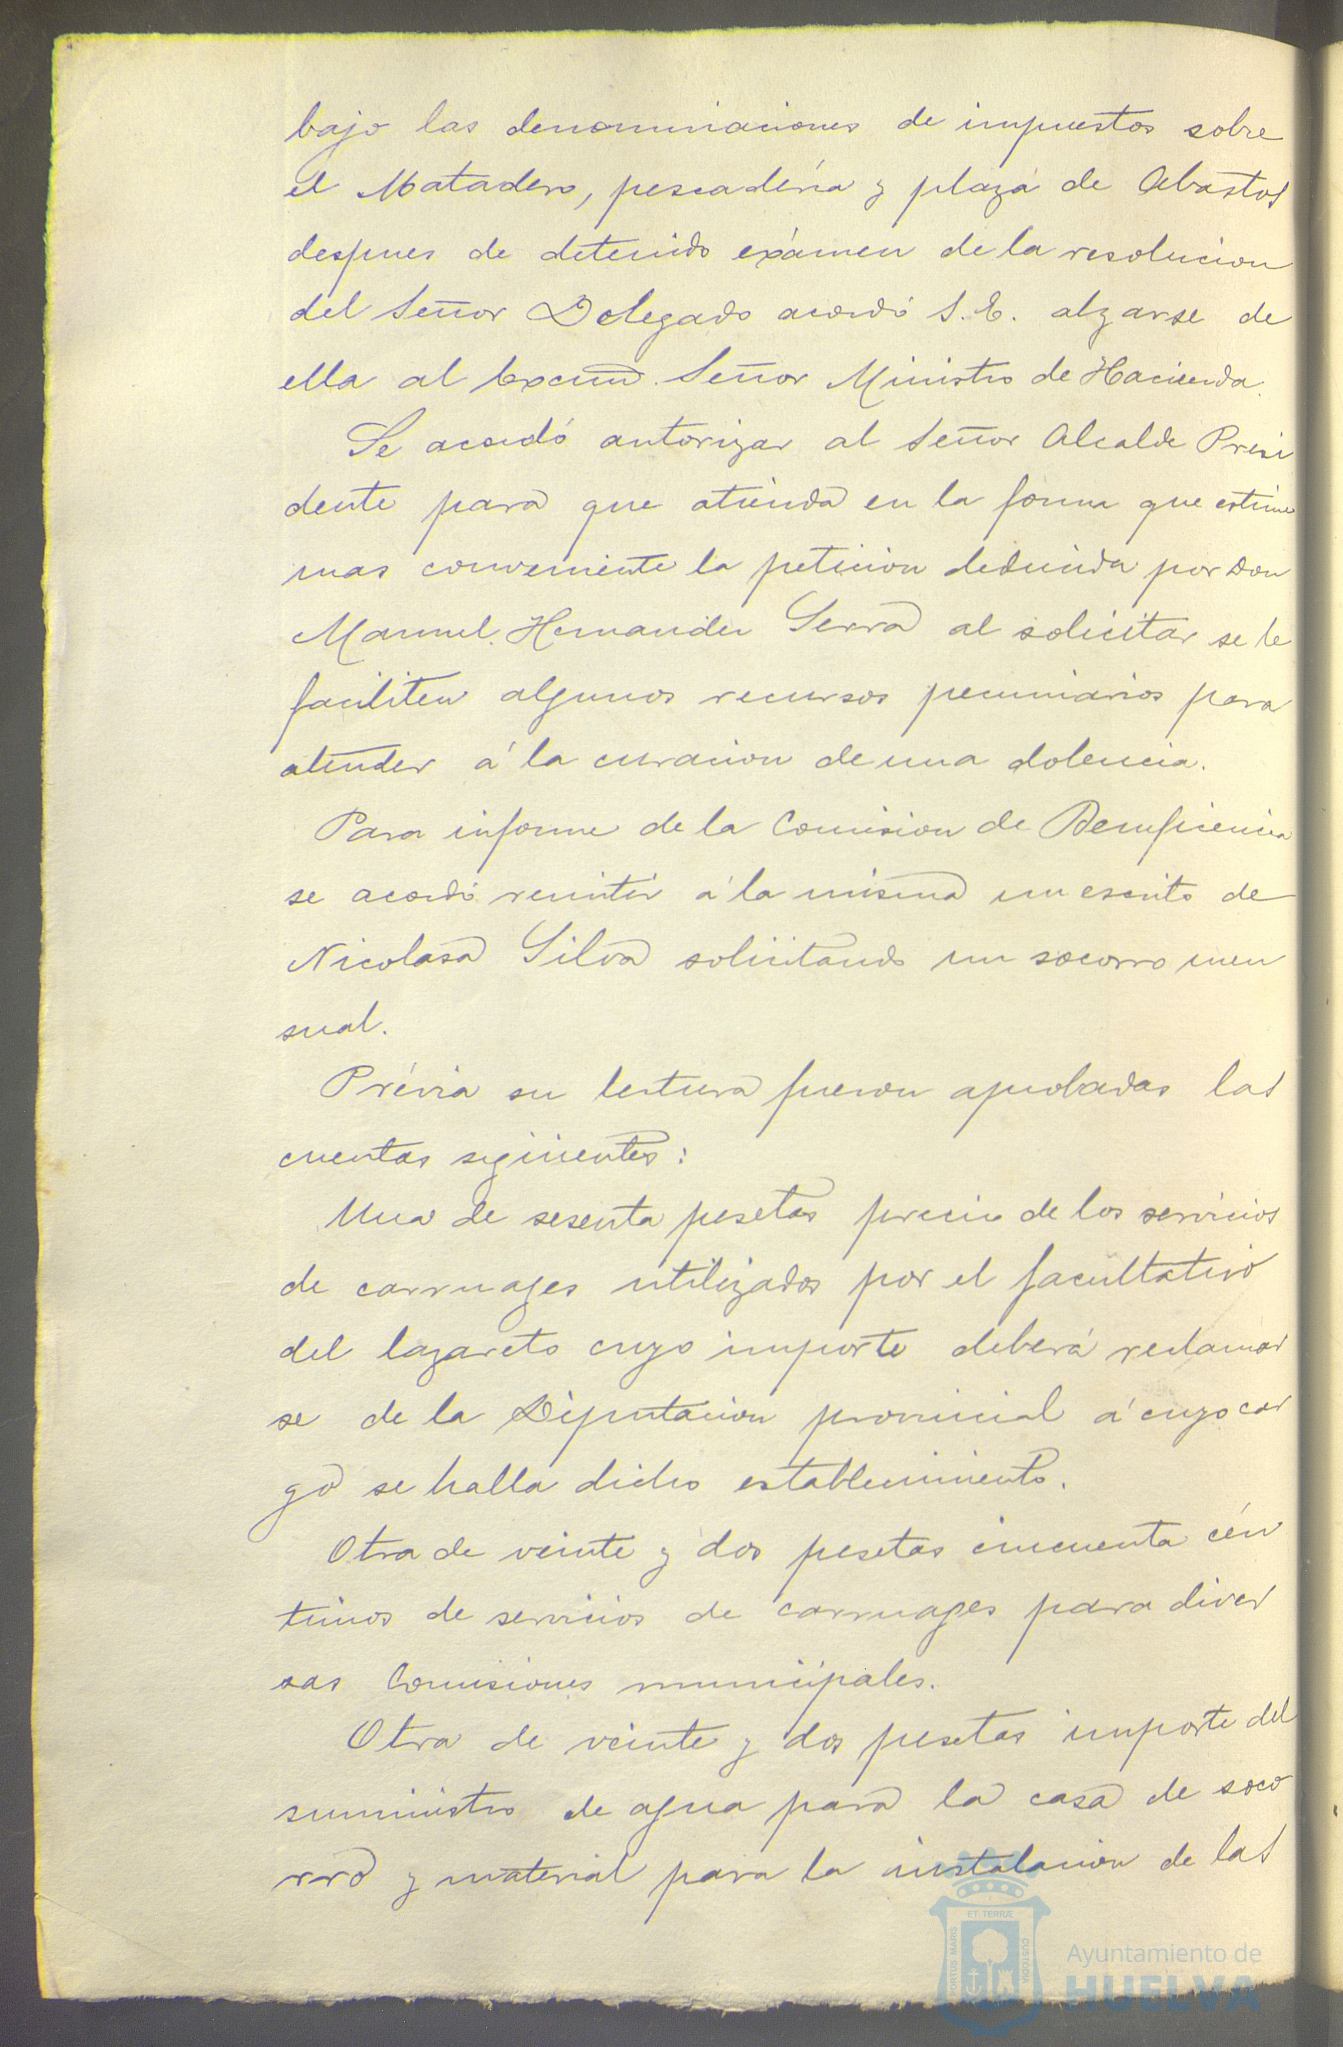 bajo las denominaciones de impuestos sobre
el Matadero, pescadería y plaza de Abastos
despues de detenido exámen de la resolucion
del Señor Delegado acordó S. E. alzarse de
ella al Excmo. Señor Ministro de Hacienda.
Se acordó autorizar al Señor Alcalde Presi
dente para que atienda en la forma que estime
mas conveniente la peticion deducida por Don
Manuel Hernandez Serra al solicitar se le
faciliten algunos recursos pecuniarios para
atender á la curacion de una dolencia.
Para informe de la Comision de Beneficencia
se acordó remitir á la misma un escrito de
Nicolasa Silva solicitando un socorro men
sual.
Prévia su lectura fueron aprobadas las
cuentas siguientes:
Una de sesenta pesetas precio de los servicios
de carruages utilizados por el facultativo
del lazareto cuyo importe deberá reclamar
se de la Diputacion provincial á cuyo car
go se halla dicho establecimiento.
Otra de veinte y dos pesetas cincuenta cén
timos de servicios de carruages para diver
sas Comisiones municipales.
Otra de veinte y dos pesetas importe del
suministro de agua para la casa de soco
rro y material para la instalacion de las
PORTUS MARIS ET TERRÆ CUSTODIA
Ayuntamiento de
HUELVA